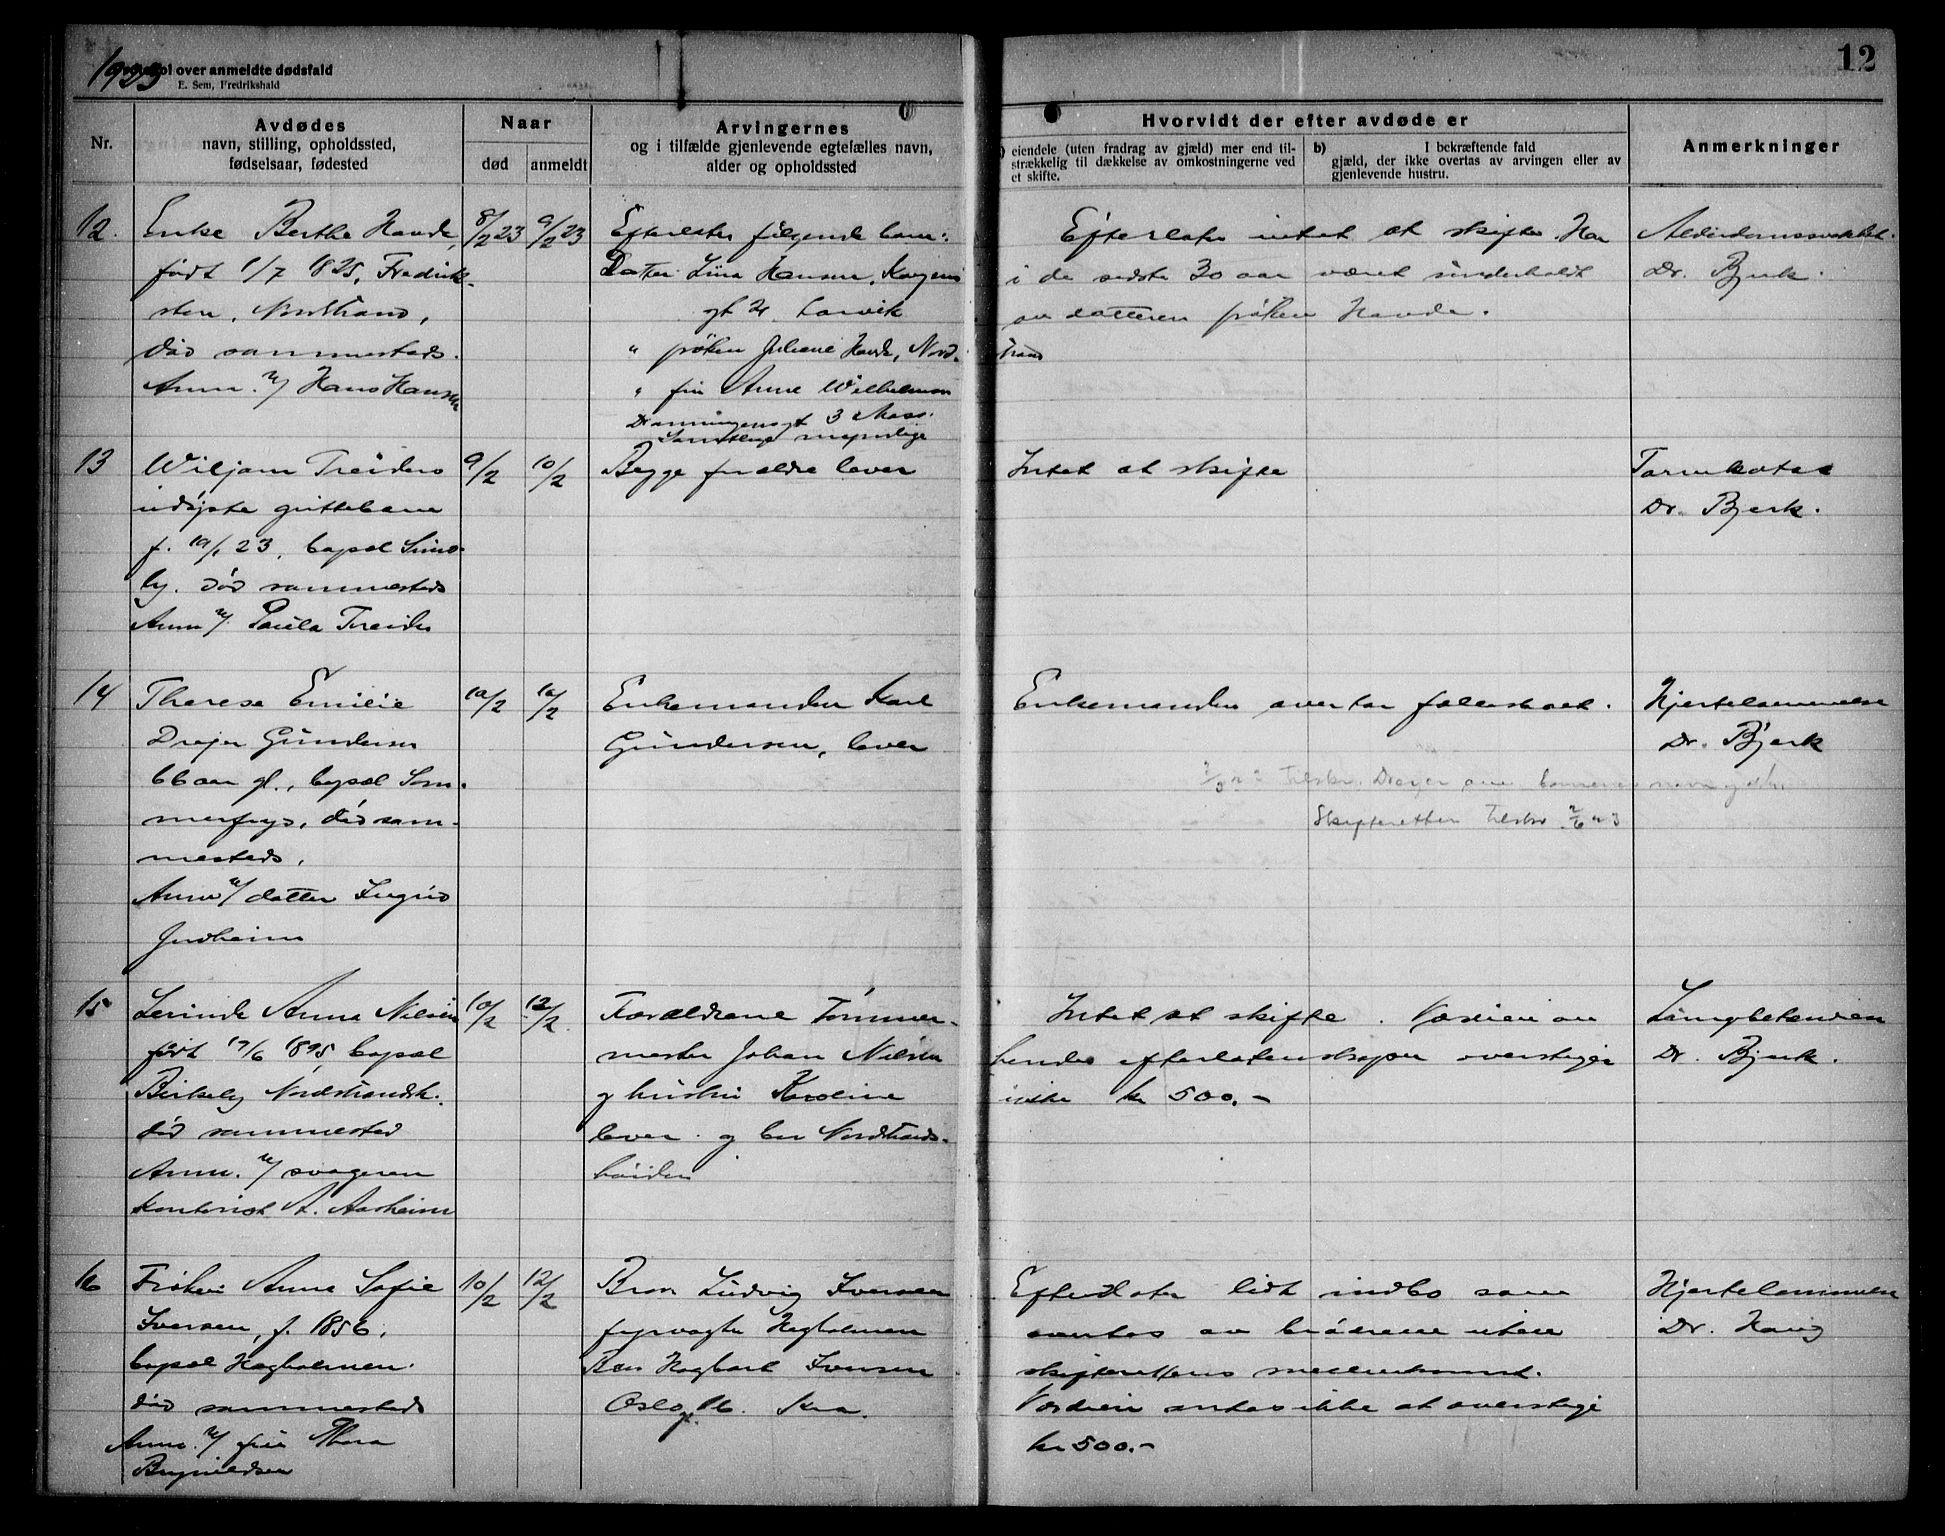 1923
Protokol over anmeldte dødsfald
E. Sem, Fredrikshald
12
Nr.
Avdødes
navn, stilling, opholdssted,
fødselsaar, fødested
Naar
død
anmeldt
Arvingernes
og i tilfælde gjenlevende egtefælles navn,
alder og opholdssted
Hvorvidt der efter avdøde er
eiendele (uten fradrag av gjæld) mer end til-
strækkelig til dækkelse av omkostningerne ved
et skifte.
b) I bekræftende fald
gjæld, der ikke overtas av arvingen eller av
gjenlevende hustru.
Anmerkninger
12.
Enke Berthe Havde,
født 1/7 1825, Fredrik-
sten, Nordstrand,
død sammesteds.
Anm. v/ Hans Hansen
8/2 23
9/2 23
Efterlater følgende barn:
Datter Lina Hansen, Kongens
gt Larvik
" frøken Juliane Havde, Nord-
strand
" fru Anne Wilhelmsen
Dronningensgt 3 Moss.
Samtlige myndige
Efterlater intet at skifte. Har
i de sidste 30 aar været underholdt
av datteren frøken Havde.
Alderdomssvakhet.
Dr. Bjerk.
13
Wiljam Treiders
udøpte guttebarn
f. 19/1 23, bopæl Simo-
by. død sammesteds
Anm v/ Paula Treider
9/2
10/2
Begge forældre lever
Intet at skifte
Tarmkatar
Dr. Bjerk.
14
Therese Emilie
Drejer Gundersen
66 aar gl., bopæl Som-
merfryd, død sam-
mesteds.
Anm v/ datter Ingrid
Jordheim
10/2
10/2
Enkemanden Karl
Gundersen, lever
Enkemanden overtar fællesboet.
Hjertelammelse
Dr. Bjerk
tilskr. Drejer om barnenes navn og alder.
Skifteretten tilskr 2/6 23
15
Lerinde Anna Nilsen
født 17/6 1895, bopæl
Birkely Nordstrandsh.
død sammested
Anm. v/ svogeren
kontorist A. Aasheim
10/2
12/2
Forældrene Tømmer-
mester Johan Nilsen
og hustru Karoline
lever og bor Nordstrands-
høiden
Intet at skifte. Værdien av
hendes efterladenskaper overstiger
ikke kr 500.-
Lungebetændelse
Dr. Bjerk.
16
Frøken Anna Sofie
Iversen, f. 1856,
bopæl Hegholmen.
død sammesteds
Anm. v/ fru Thora
Brynildsen
10/2
12/2
Bror Ludvig Iversen
fyrvogter Hegholmen
Bror Hagbart Iversen
Oslogt. 16. Kra.
Efterlater lidt indbo som
overtas av brødrene uten
skifterettens mellemkomst.
Værdien antas ikke at overstige
kr 500.-
Hjertelammelse
Dr. Haug